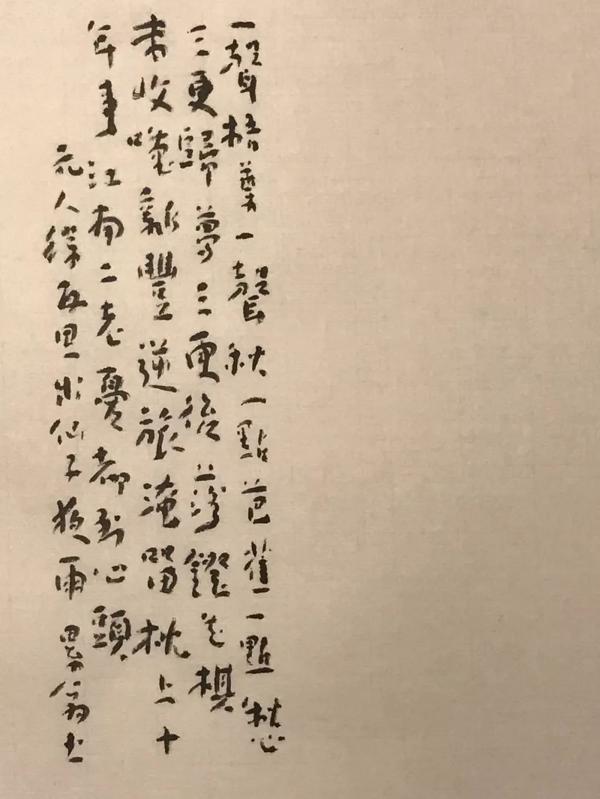 一聲梧葉一聲秋一點芭蕉一點愁
三更歸夢三更後落鐙花棋
未收嘆新豐逆旅淹留枕上十
年事江南二老憂都到心頭
元人徐再思水仙子夜雨 翁书